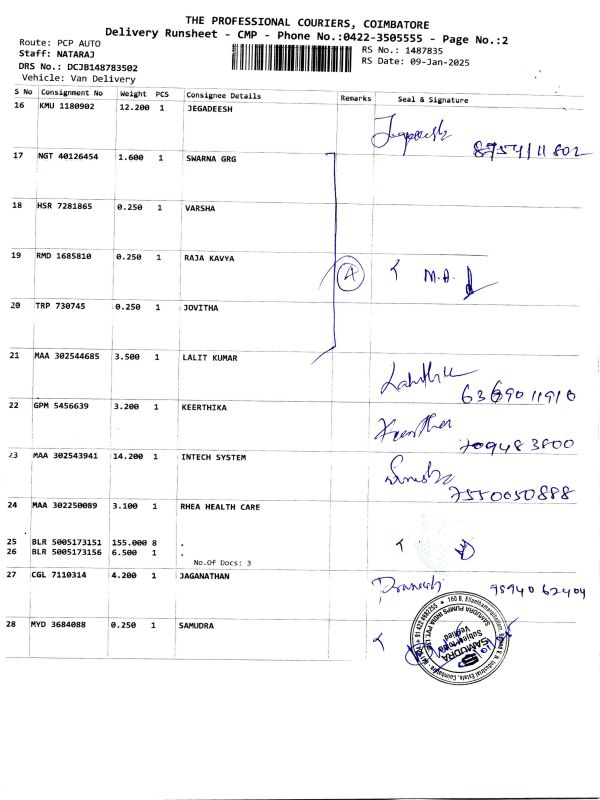 THE PROFESSIONAL COURIERS, COIMBATORE
Delivery Runsheet - CMP - Phone No.:0422-3505555 - Page No.:2
Route: PCP AUTO
Staff: NATARAJ
DRS No.: DCJB148783502
Vehicle: Van Delivery
RS No.: 1487835
RS Date: 09-Jan-2025
S No Consignment No Weight PCS Consignee Details Remarks Seal & Signature
16 KMU 1180902 12.200 1 JEGADEESH
17 NGT 40126454 1.600 1 SWARNA GRG
18 HSR 7281865 0.250 1 VARSHA
19 RMD 1685810 0.250 1 RAJA KAVYA A M.A.
20 TRP 730745 0.250 1 JOVITHA
21 MAA 302544685 3.500 1 LALIT KUMAR
6369011910
22 GPM 5456639 3.200 1 KEERTHIKA
7094483800
23 MAA 302543941 14.200 1 INTECH SYSTEM
7550050888
24 MAA 302250089 3.100 1 RHEA HEALTH CARE
25 BLR 5005173151 155.000 8 .
26 BLR 5005173156 6.500 1 .
No.Of Docs: 3
27 CGL 7110314 4.200 1 JAGANATHAN
28 MYD 3684088 0.250 1 SAMUDRA
SAMUDRA PUMPS INDIA PVT LTD
SAMUDRA
Subject to be
Verified